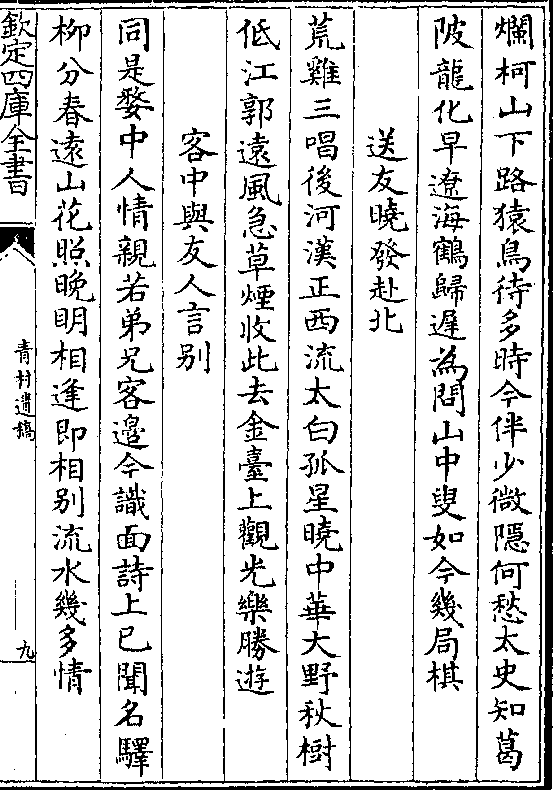 爛柯山下路猿鳥待多時今伴少微隱何愁太史知葛
陂龍化早遼海鶴歸遲為問山中叟如今幾局棋
送友曉發赴北
荒雞三唱後河漢正西流太白孤星曉中華大野秋樹
低江郭遠風急草煙收此去金臺上觀光樂勝遊
客中與友人言别
同是婺中人情親若弟兄客邉今識面詩上已聞名驛
柳分春逺山花照晚明相逢即相别流水幾多情
欽定四庫全書
青村遺稿
九